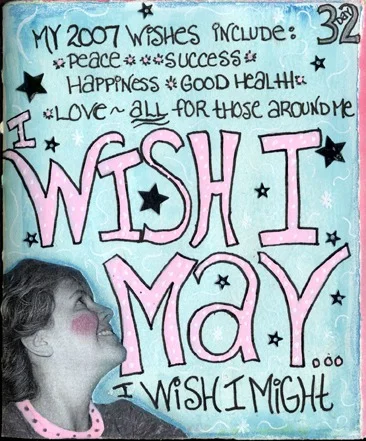 Day 32
MY 2007 WISHES INCLUDE:
PEACE SUCCESS
HAPPINESS GOOD HEALTH
LOVE ~ ALL FOR THOSE AROUND ME
I
WISH I
MAY...
I WISH I MIGHT